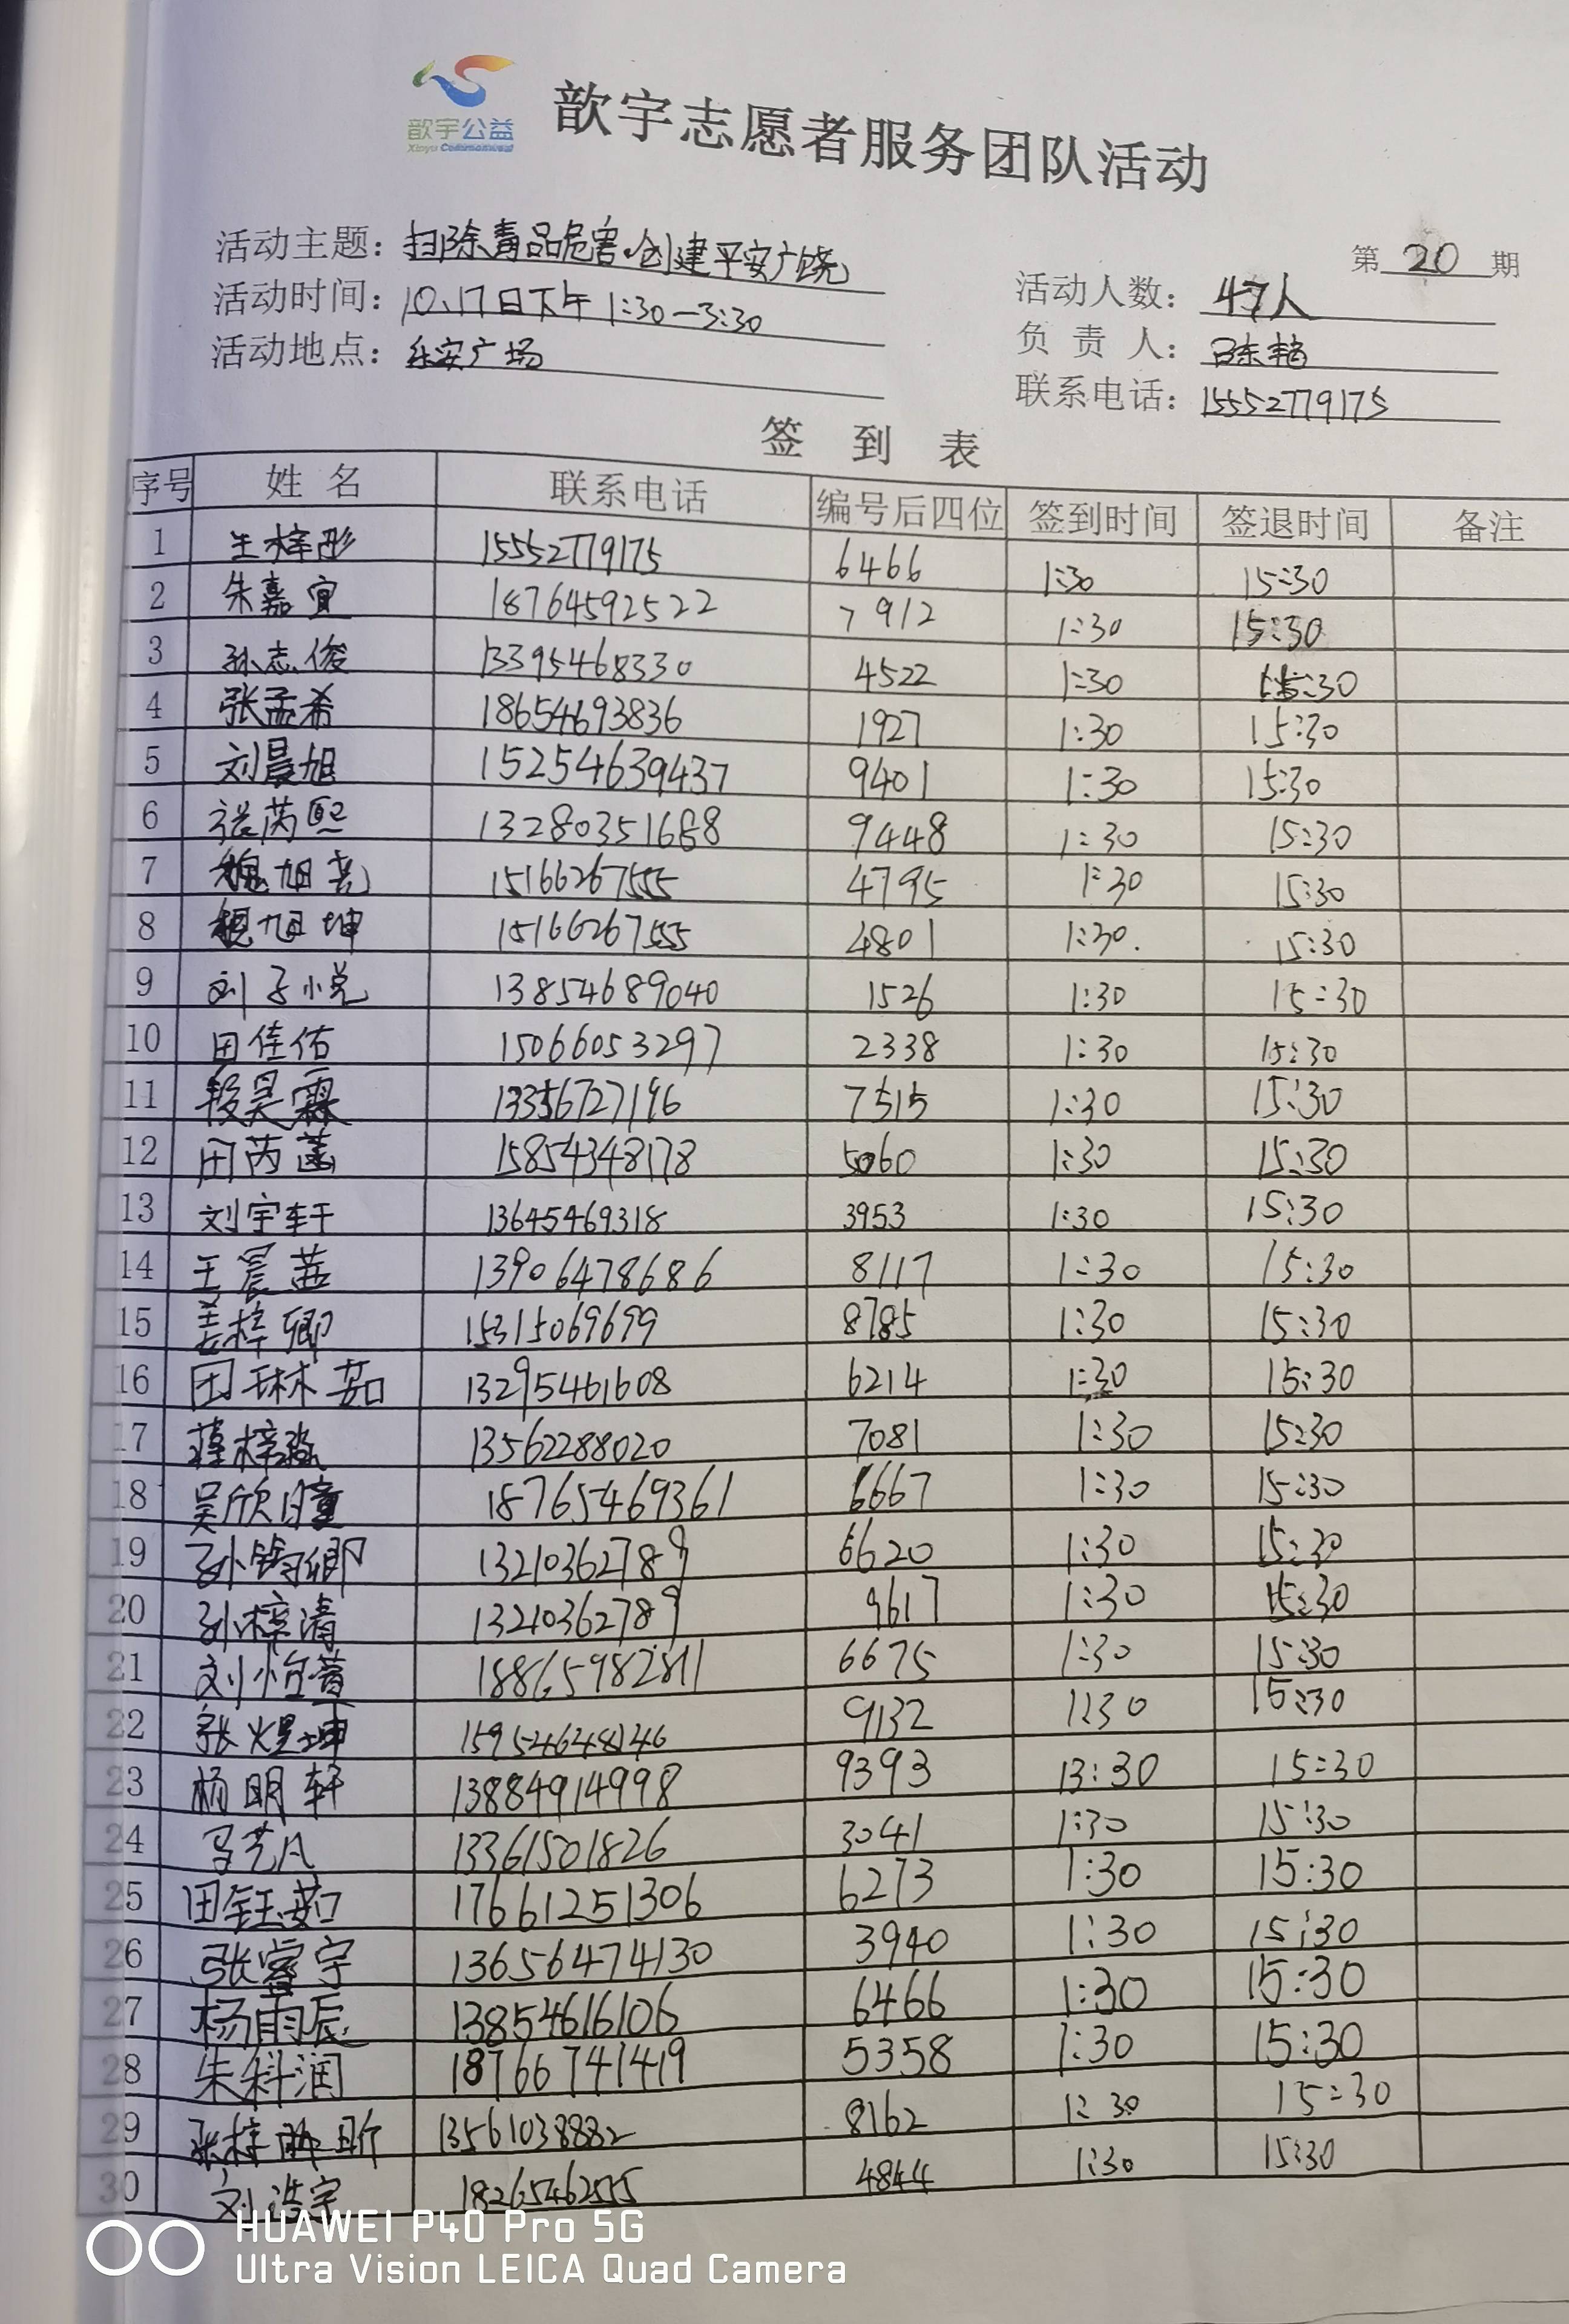 歆宇公益
Xinyu Commonweal
歆宇志愿者服务团队活动
第 20 期
活动主题：扫除毒品危害，创建平安广饶
活动时间：10.17日下午1:30—3:30
活动地点：乐安广场
活动人数：47人
负责人：
联系电话：15552779175
签到表
序号 姓名 联系电话 编号后四位 签到时间 签退时间 备注
1 王梓彤 15552779175 6466 1:30 15:30
2 朱嘉宜 18764592522 7912 1:30 15:30
3 孙志俊 13395468330 4522 1:30 15:30
4 张孟希 18654693836 1927 1:30 15:30
5 刘晨旭 15254639437 9401 1:30 15:30
6 张芮熙 13280351688 9448 1:30 15:30
7 魏旭尧 15166267555 4795 1:30 15:30
8 魏旭坤 15166267555 4801 1:30. 15:30
9 刘子小悦 13854689040 1526 1:30 15:30
10 田佳佑 15066053297 2338 1:30 15:30
11 段昊霖 13356727196 7515 1:30 15:30
12 田芮菡 15854348178 5060 1:30 15:30
13 刘宇轩 13645469318 3953 1:30 15:30
14 王晨茜 13906478686 8117 1:30 15:30
15 姜梓卿 15315069699 8785 1:30 15:30
16 田琳茹 13295461608 6214 1:30 15:30
17 13562288020 7081 1:30 15:30
18 吴欣瞳 18765469361 6667 1:30 15:30
19 孙钧卿 13210362789 6620 1:30 15:30
20 孙梓清 13210362789 9617 1:30 15:30
21 刘怡萱 18865982811 6675 1:30 15:30
22 张煜坤 15954648146 9132 1:30 15:30
23 杨明轩 13884914998 9393 13:30 15:30
24 马艺凡 13361501826 3041 1:30 15:30
25 田钰茹 17661251306 6273 1:30 15:30
26 张睿宇 13656474130 3940 1:30 15:30
27 杨雨辰 13854616106 6466 1:30 15:30
28 朱科润 18766741419 5358 1:30 15:30
29 13561038882 8162 1:30 15:30
30 刘浩宇 18265462555 4844 1:30 15:30
HUAWEI P40 Pro 5G
Ultra Vision LEICA Quad Camera